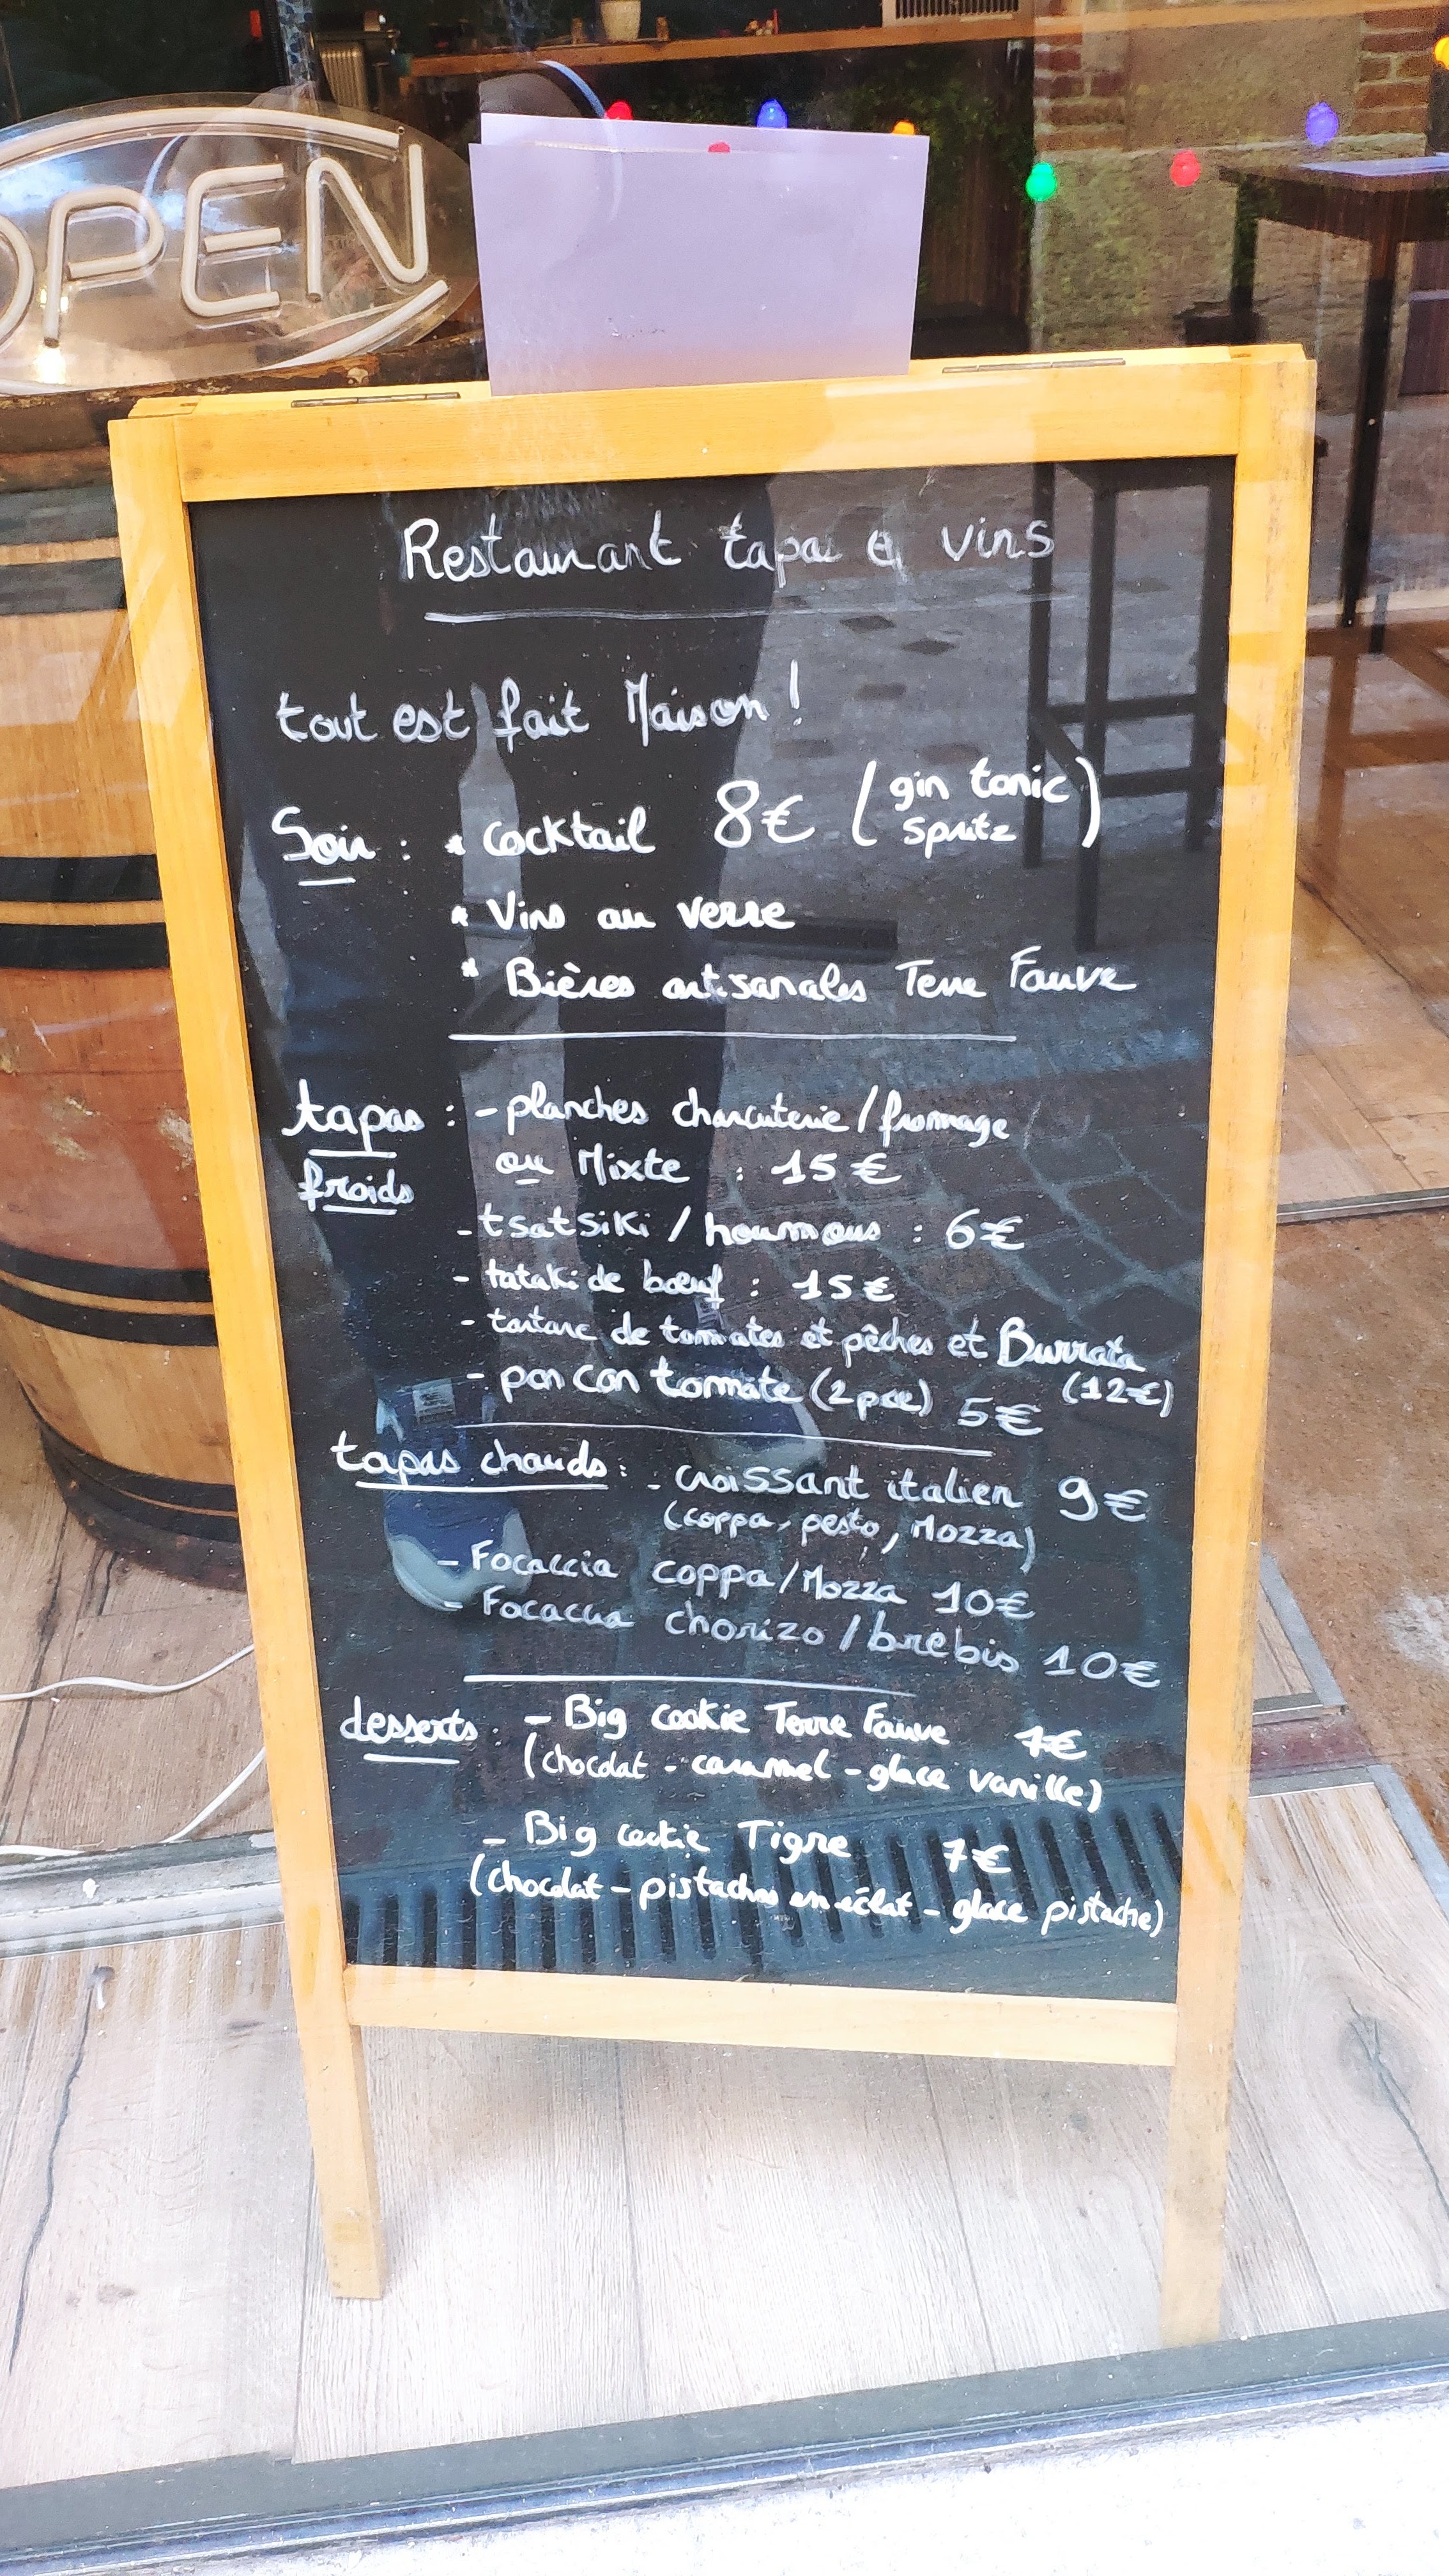 OPEN
Restaurant tapas et vins
tout est fait Maison !
Soir : * cocktail 8€ ( gin tonic
spritz )
* Vins au verre
* Bières artisanales Terre Fauve
tapas : - planches charcuterie / fromage
froids ou Mixte : 15€
- tsatsiki / houmous : 6€
- tataki de bœuf : 15€
- tartare de tomates et pêches et Burrata
(12€)
- pan con tomate (2pce) 5€
tapas chauds : - croissant italien 9€
(coppa, pesto, Mozza)
- Focaccia coppa/Mozza 10€
- Focaccia chorizo / brebis 10€
desserts : - Big cookie Terre Fauve 7€
(chocolat - caramel - glace vanille)
- Big cookie Tigre 7€
(chocolat - pistaches en éclat - glace pistache)